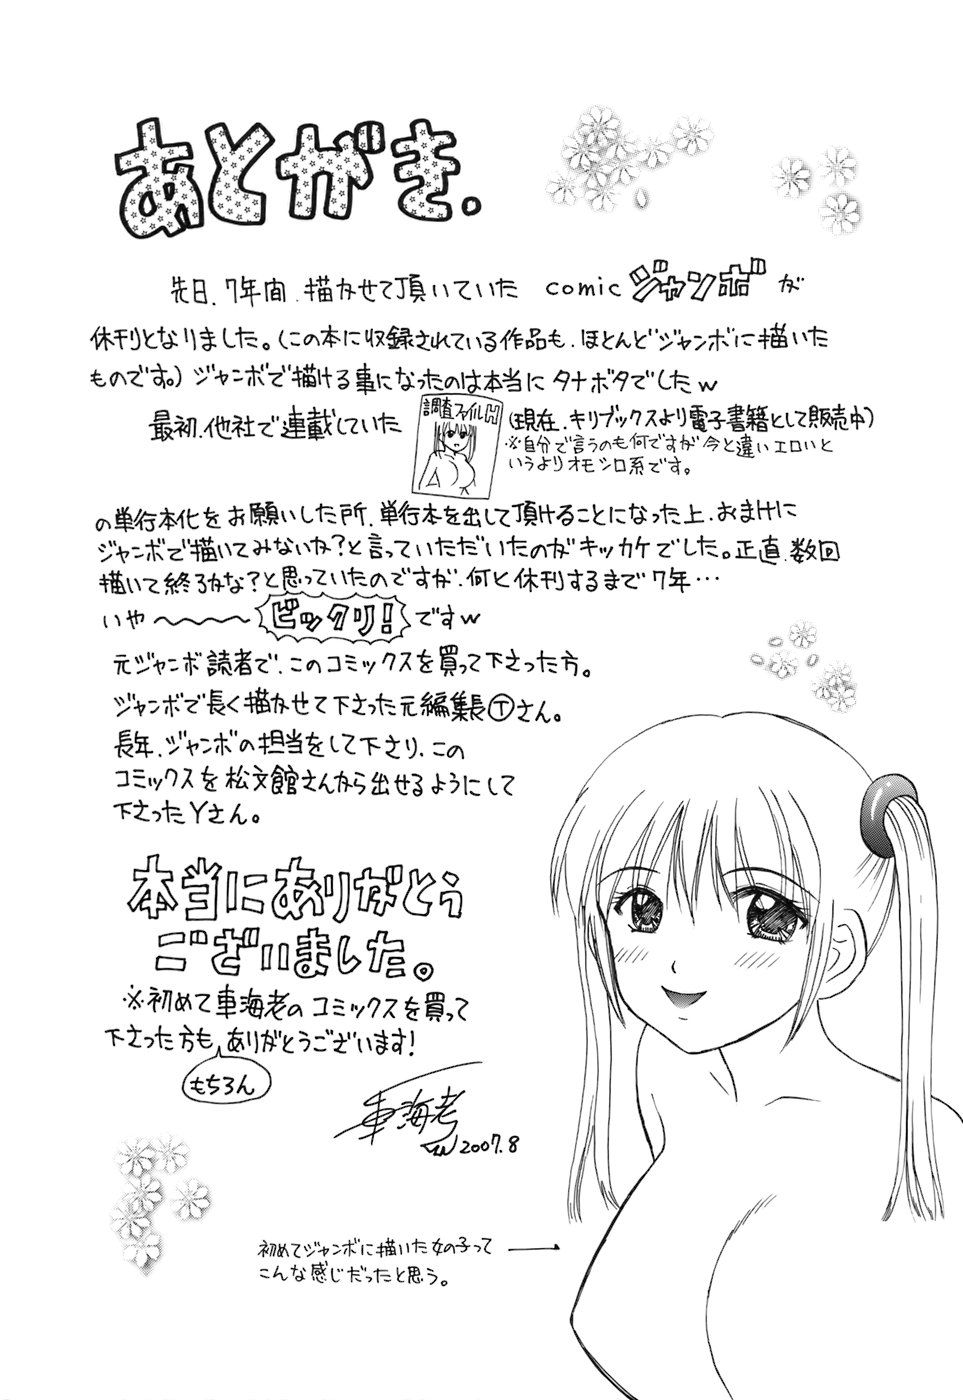 あとがき.
先日、7年間、描かせて頂いていた comic ジャンボ が
休刊となりました。(この本に収録されている作品も、ほとんどジャンボに描いた
ものです。)ジャンボで描ける事になったのは本当に タナボタでしたw
最初、他社で連載していた
調査ファイルH
(現在、キリブックスより電子書籍として販売中)
※自分で言うのも何ですが今と違いエロいと
いうよりオモシロ系です。
の単行本化をお願いした所、単行本を出して頂けることになった上、おまけに
ジャンボで描いてみないか?と言っていただいたのがキッカケでした。正直、数回
描いて終るかな?と思っていたのですが、何と休刊するまで7年…
いや〜〜〜〜 ビックリ! ですw
元ジャンボ読者で、このコミックスを買って下さった方。
ジャンボで長く描かせて下さった元編集長Ⓣさん。
長年、ジャンボの担当をして下さり、この
コミックスを松文館さんから出せるようにして
下さったYさん。
本当にありがとう
ございました。
※初めて車海老のコミックスを買って
下さった方も、ありがとうございます!
もちろん
車海老
2007.8
初めてジャンボに描いた女の子って
こんな感じだったと思う。